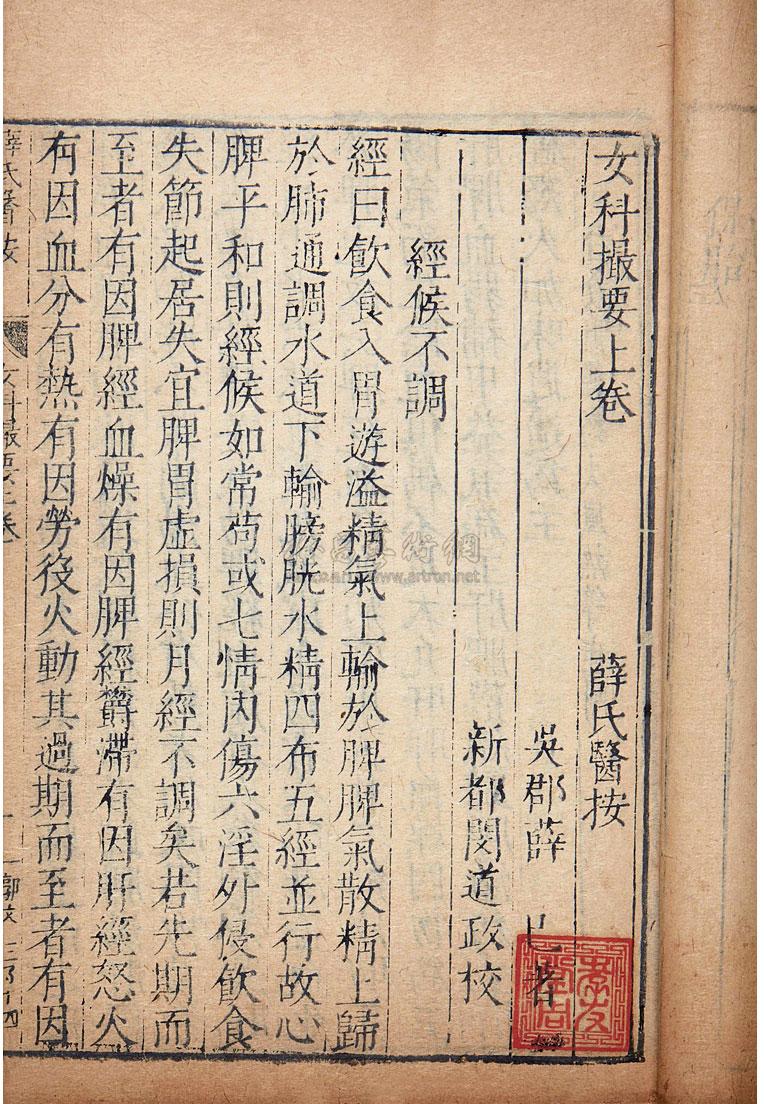 女科撮要上卷 薛氏醫按
吳郡薛 己 著
新都閔道政校
經候不調
經曰飲食入胃遊溢精氣上輸於脾脾氣散精上歸
於肺通調水道下輸膀胱水精四布五經並行故心
脾平和則經候如常苟或七情內傷六淫外侵飲食
失節起居失宜脾胃虛損則月經不調矣若先期而
至者有因脾經血燥有因脾經欝滯有因肝經怒火
有因血分有熱有因勞役火動其過期而至者有因
薛氏醫按 女科撮要上卷 一
www.artron.net